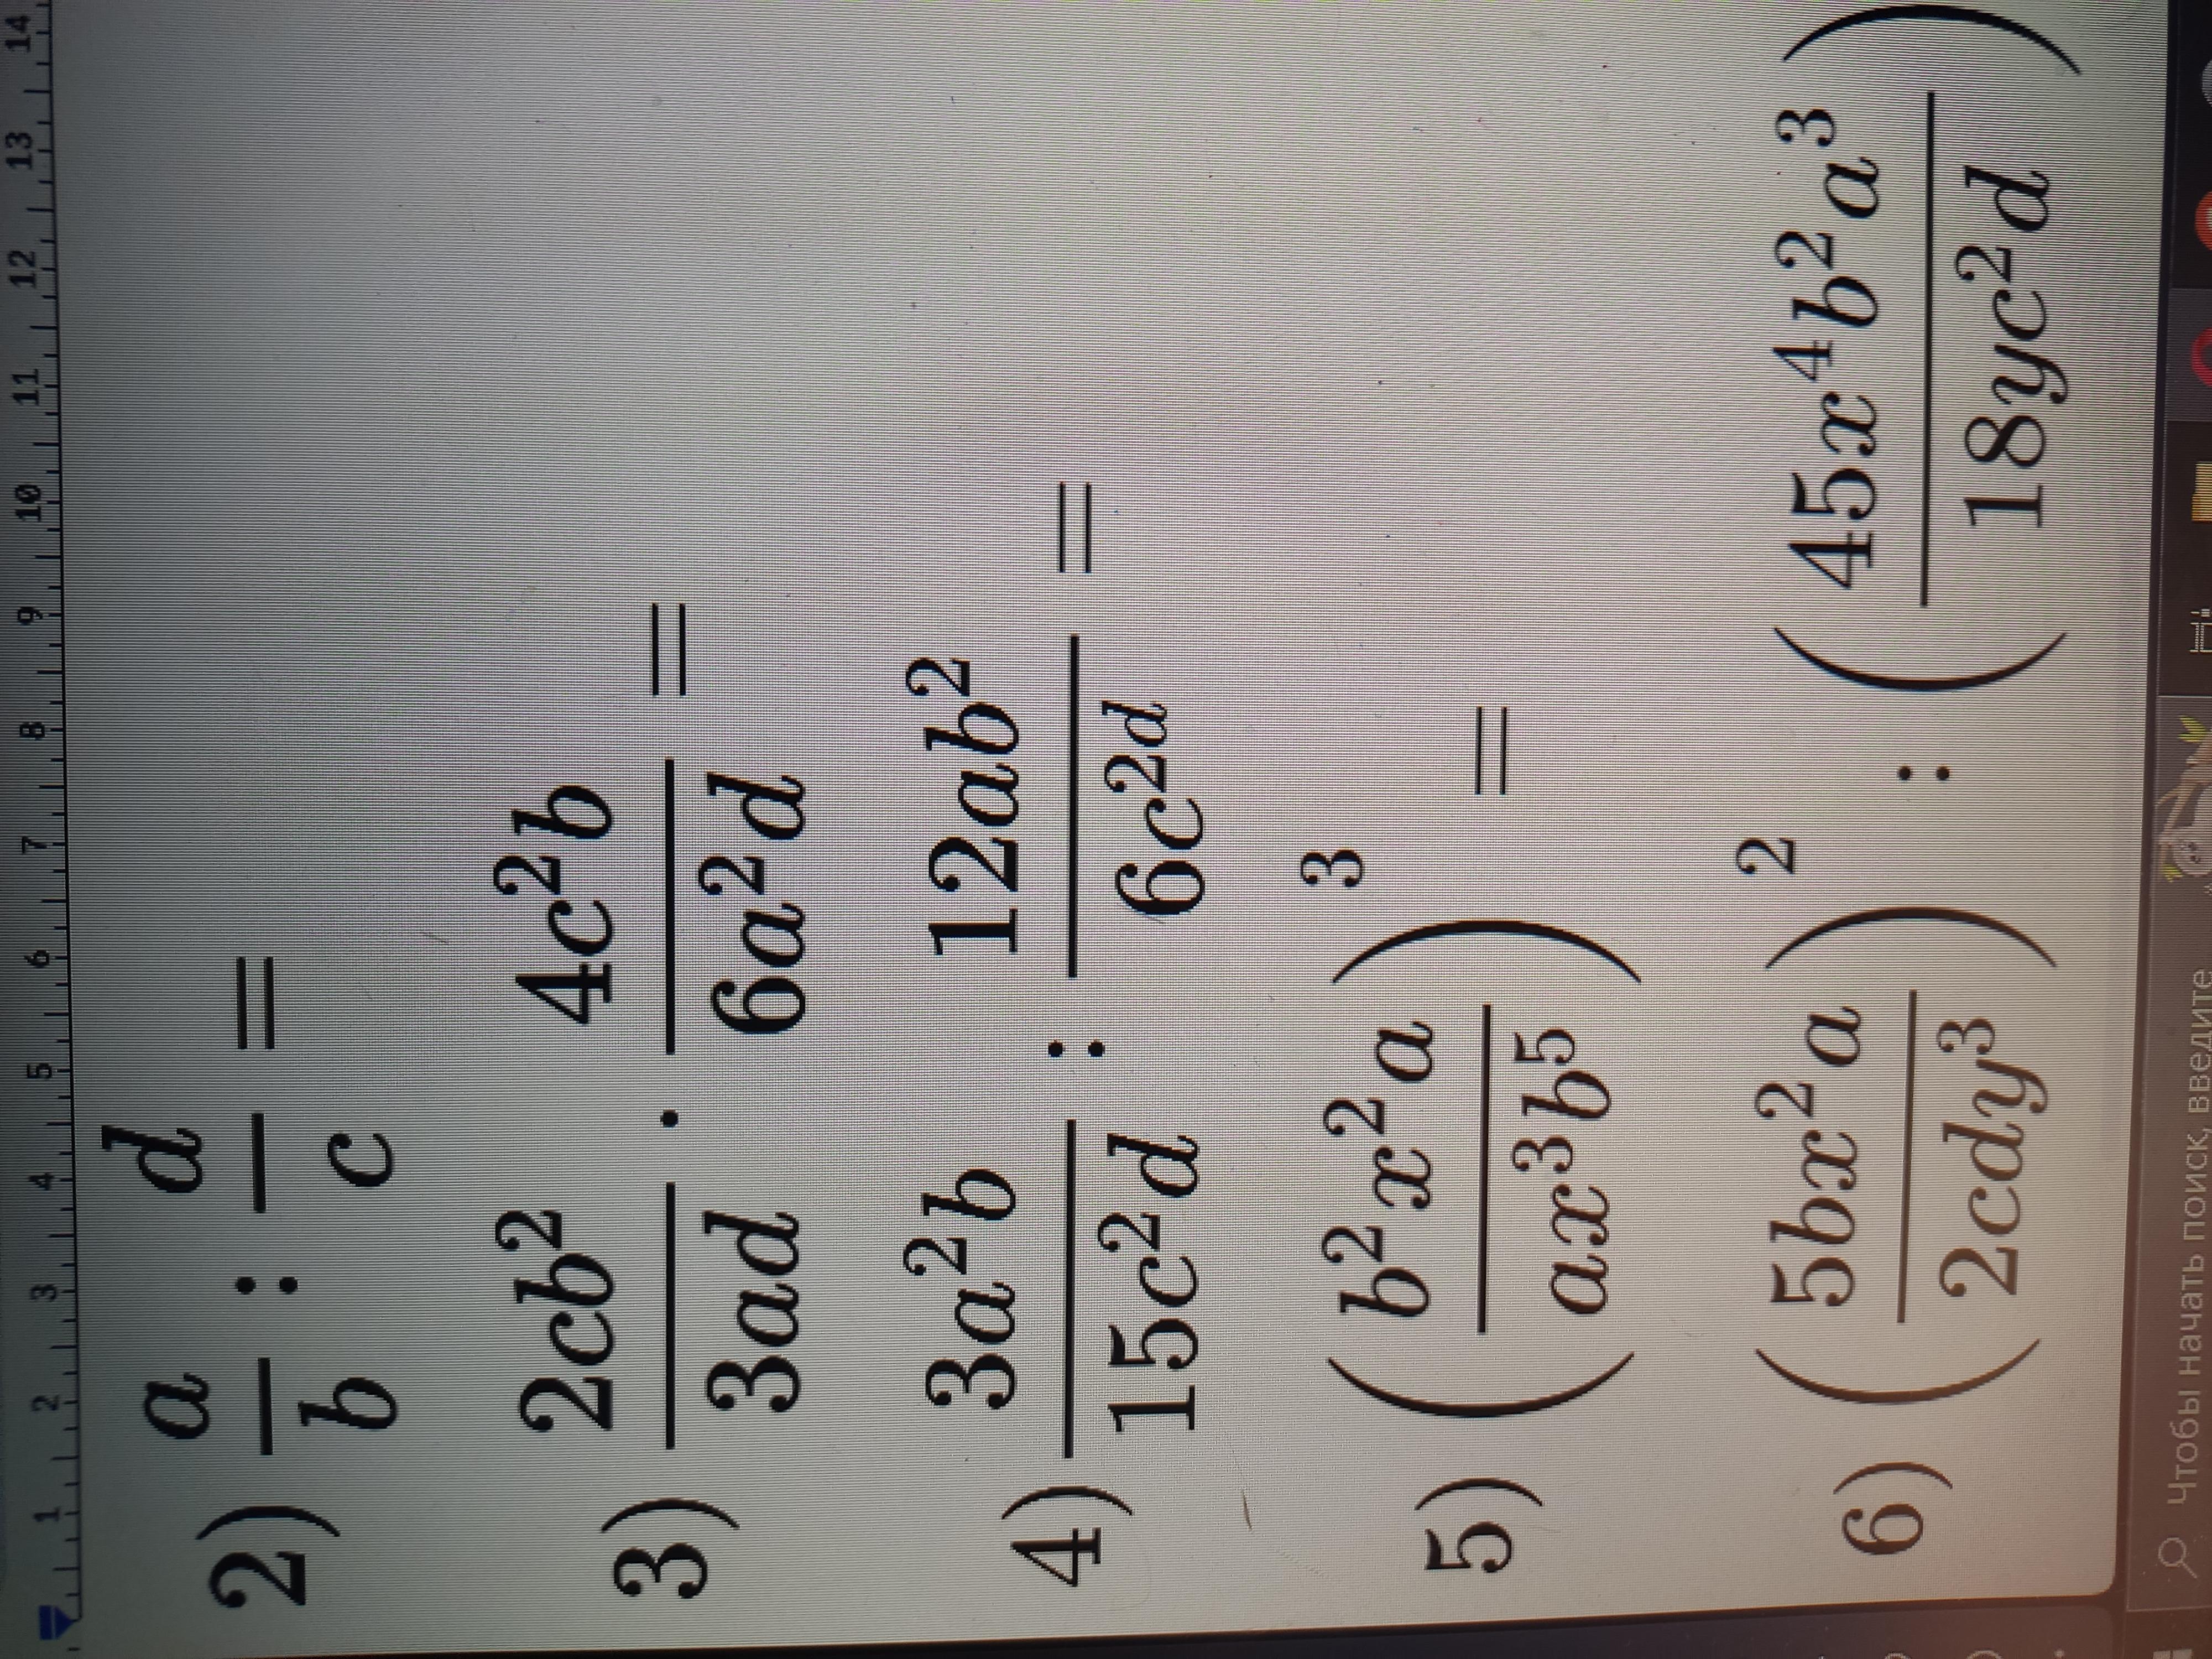 1 2 3 4 5 6 7 8 9 10 11 12 13 14
2) \frac{a}{b} : \frac{d}{c} =
3) \frac{2cb^2}{3ad} \cdot \frac{4c^2b}{6a^2d} =
4) \frac{3a^2b}{15c^2d} : \frac{12ab^2}{6c^{2d}} =
5) \left(\frac{b^2x^2a}{ax^3b^5}\right)^3 =
6) \left(\frac{5bx^2a}{2cdy^3}\right)^2 : \left(\frac{45x^4b^2a^3}{18yc^2d}\right)
Чтобы начать поиск, введите